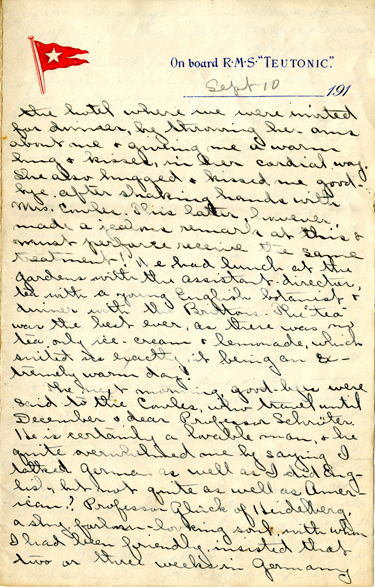 On board R·M·S· "TEUTONIC."
Sept 10 191
the hotel where we were invited
for dinner, by throwing her arms
about me & giving me a warm
hug & kisses, in her cordial way.
She also hugged & kissed me good-
bye, after shaking hands with
Mrs. Cowles. This latter, however,
made a jealous remark at this &
must perforce receive the same
treatment! We had lunch at the
gardens with the assistant director,
tea with a young English botanist, &
dinner with the Brittons. The tea
was the best ever, as there was no
tea, only ice-cream & lemonade, which
suited us exactly, it being an ex-
tremely warm day.
The next morning good-byes were
said to the Cowles, who travel until
December & dear Professor Schröter.
He is certainly a lovable man, & he
quite overwhelmed me by saying I
talked German as well as I did Eng-
lish, but not quite as well as Amer-
ican! Professor Glück of Heidelberg,
a shy, forlorn-looking soul, with whom
I had been friendly, insisted that
two or three weeks in Germany